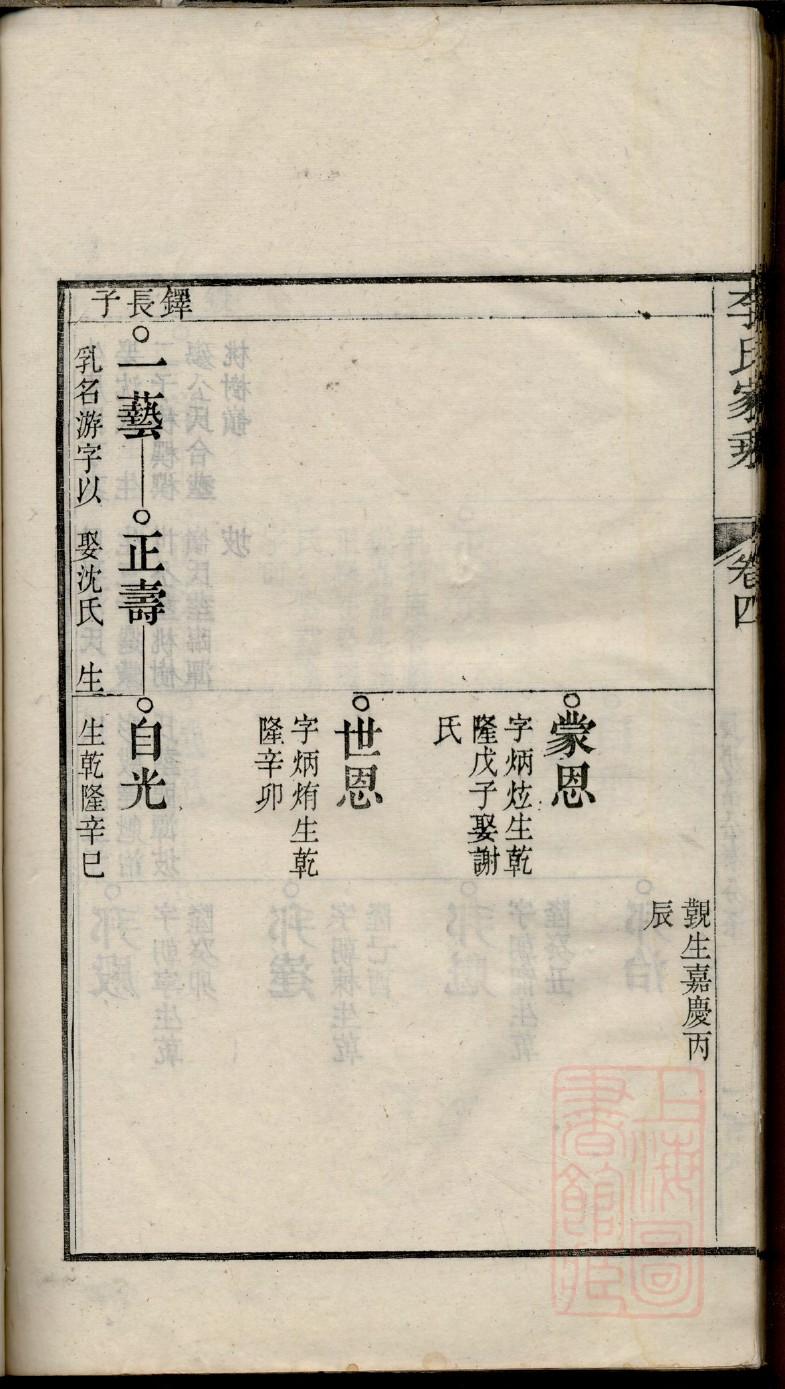 李氏家乘
卷四
觀生嘉慶丙
辰
蒙恩
字炳炫生乾
隆戊子娶謝
氏
世恩
字炳烠生乾
隆辛卯
鐸長子
一藝
乳名游字以
正壽
娶沈氏 生
自光
生乾隆辛巳
上海圖
書館藏